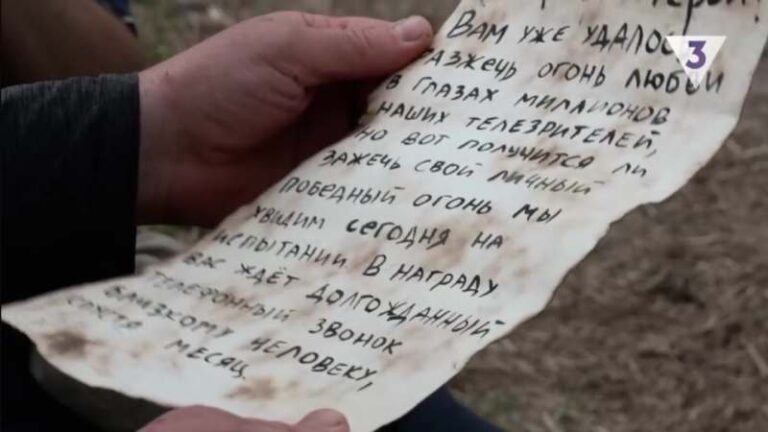 Вам уже удалось
разжечь огонь любви
в глазах миллионов
наших телезрителей,
но вот получится ли
зажечь свой личный
победный огонь мы
увидим сегодня на
испытании В награду
вас ждёт долгожданный
телефонный звонок
близкому человеку,
спустя месяц.
3